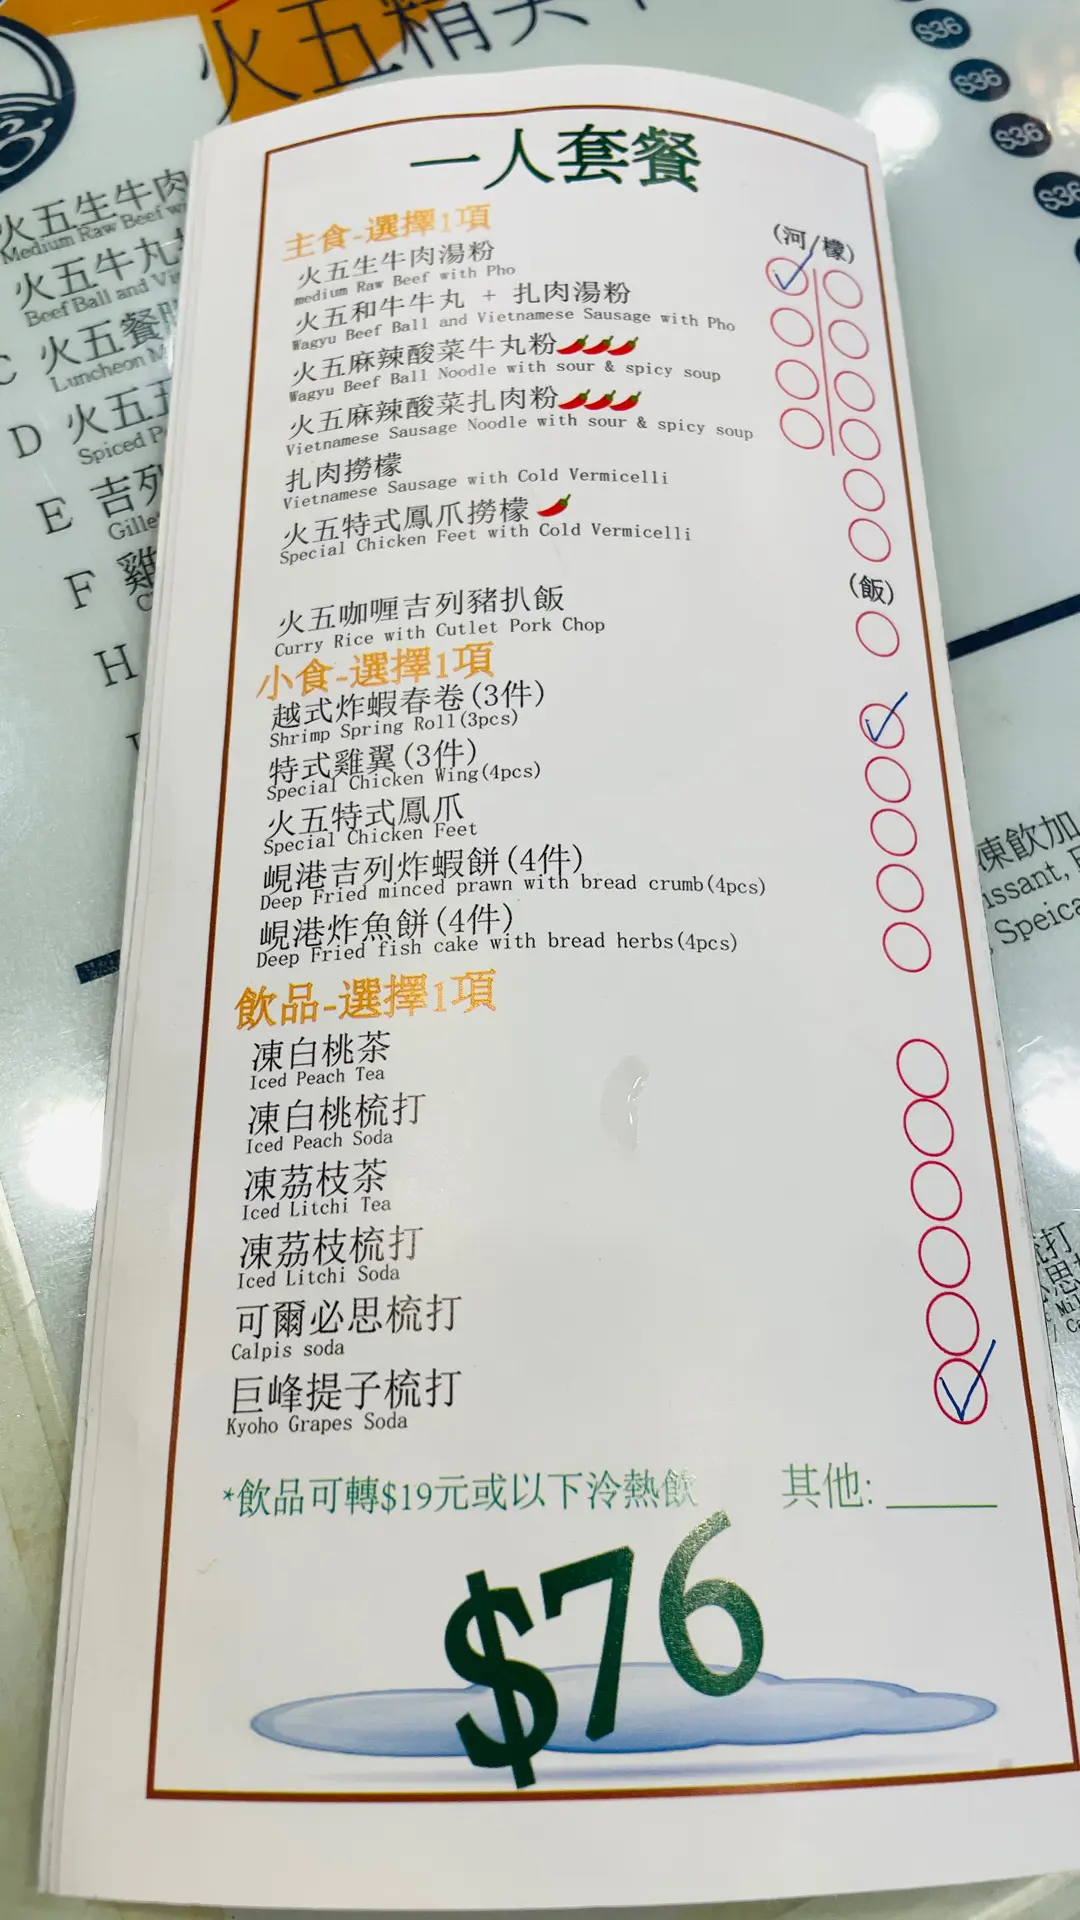 火五精
S36
S36
S36
S36
火五生牛肉
Medium Raw Beef
火五牛丸
Beef Ball and
C 火五餐
Luncheon
D 火五
Spiced
E 吉列
F 雞
H
一人套餐
主食-選擇1項
(河/檬)
火五生牛肉湯粉
medium Raw Beef with Pho
火五和牛牛丸 + 扎肉湯粉
Wagyu Beef Ball and Vietnamese Sausage with Pho
火五麻辣酸菜牛丸粉
Wagyu Beef Ball Noodle with sour & spicy soup
火五麻辣酸菜扎肉粉
Vietnamese Sausage Noodle with sour & spicy soup
扎肉撈檬
Vietnamese Sausage with Cold Vermicelli
火五特式鳳爪撈檬
Special Chicken Feet with Cold Vermicelli
(飯)
火五咖喱吉列豬扒飯
Curry Rice with Cutlet Pork Chop
小食-選擇1項
越式炸蝦春卷(3件)
Shrimp Spring Roll(3pcs)
特式雞翼(3件)
Special Chicken Wing(4pcs)
火五特式鳳爪
Special Chicken Feet
峴港吉列炸蝦餅(4件)
Deep Fried minced prawn with bread crumb(4pcs)
峴港炸魚餅(4件)
Deep Fried fish cake with bread herbs(4pcs)
飲品-選擇1項
凍白桃茶
Iced Peach Tea
凍白桃梳打
Iced Peach Soda
凍荔枝茶
Iced Litchi Tea
凍荔枝梳打
Iced Litchi Soda
可爾必思梳打
Calpis soda
巨峰提子梳打
Kyoho Grapes Soda
*飲品可轉$19元或以下泠熱飲 其他:
$76
凍飲加
issant,
Speica